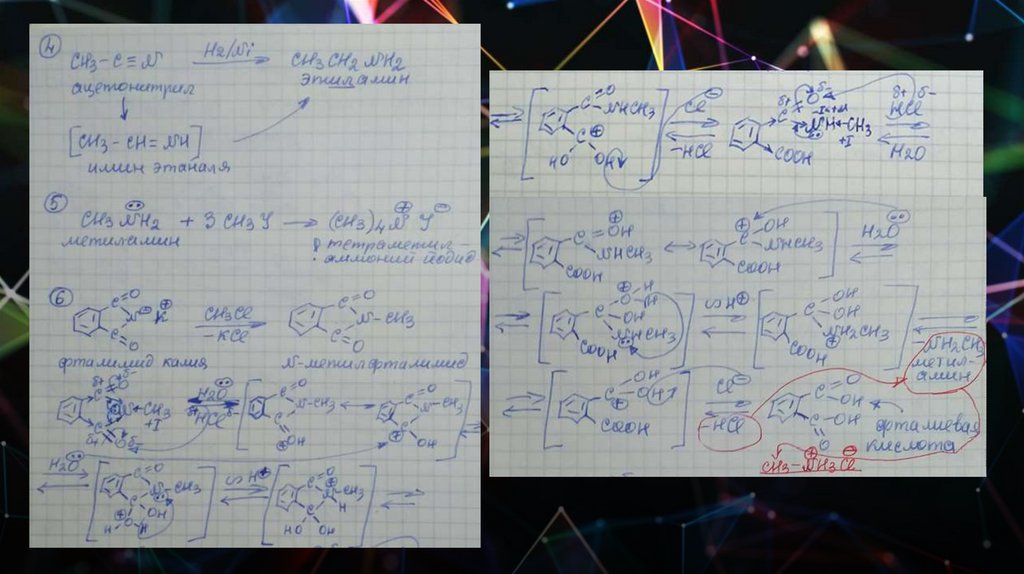 4
CH3-C≡N H2/Ni CH3CH2NH2
ацетонитрил этиламин
[CH3-CH=NH]
имин этаналя
5
CH3NH2 + 3 CH3Y → (CH3)4N⊕ Y⊖
метиламин тетраметил
аммоний йодид
6
CH3Cl
-KCl
N-CH3
фталимид калия N-метилфталимид
H2O
HCl
N-CH3
OH
H2O
N-CH3
OH
HO OH
⇌ C=O NHCH3 Cl⊖ -HCl
HO OH
NH-CH3
+I
COOH
HCl
H2O
OH
NHCH3
COOH
OH
NHCH3
COOH
H2O
NHCH3
COOH
OH
OH
NH2CH3
COOH
-NH2CH3
метил-
амин
OH
COOH
Cl⊖
-HCl
OH
OH
фталиевая
кислота
CH3-NH3Cl